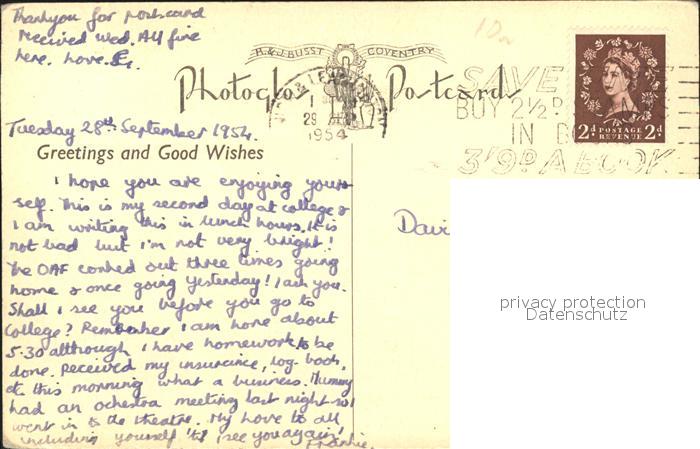 Thankyou for postcard
received Wed. All fine
here. Love.
B & J BUSST COVENTRY
Photoglos Postcard
1954
SAVE
BUY 2½D.
IN B
3/9D. A BOOK
2d POSTAGE REVENUE 2d
Tuesday 28th September 1954.
Greetings and Good Wishes
I hope you are enjoying your-
self. This is my second day at college &
I am writing this in lunch hours. It is
not bad but I'm not very bright!
The OAF conked out three times going
home & once going yesterday! I ask you.
Shall I see you before you go to
College? Remember I am home about
5.30 although I have homework to be
done. Received my insurance, log-book,
etc this morning what a business. Mummy
had an ochestra meeting last night so I
went in to the theatre. My love to all
including yourself 'til I see you again!
Frankie.
Davi
privacy protection
Datenschutz